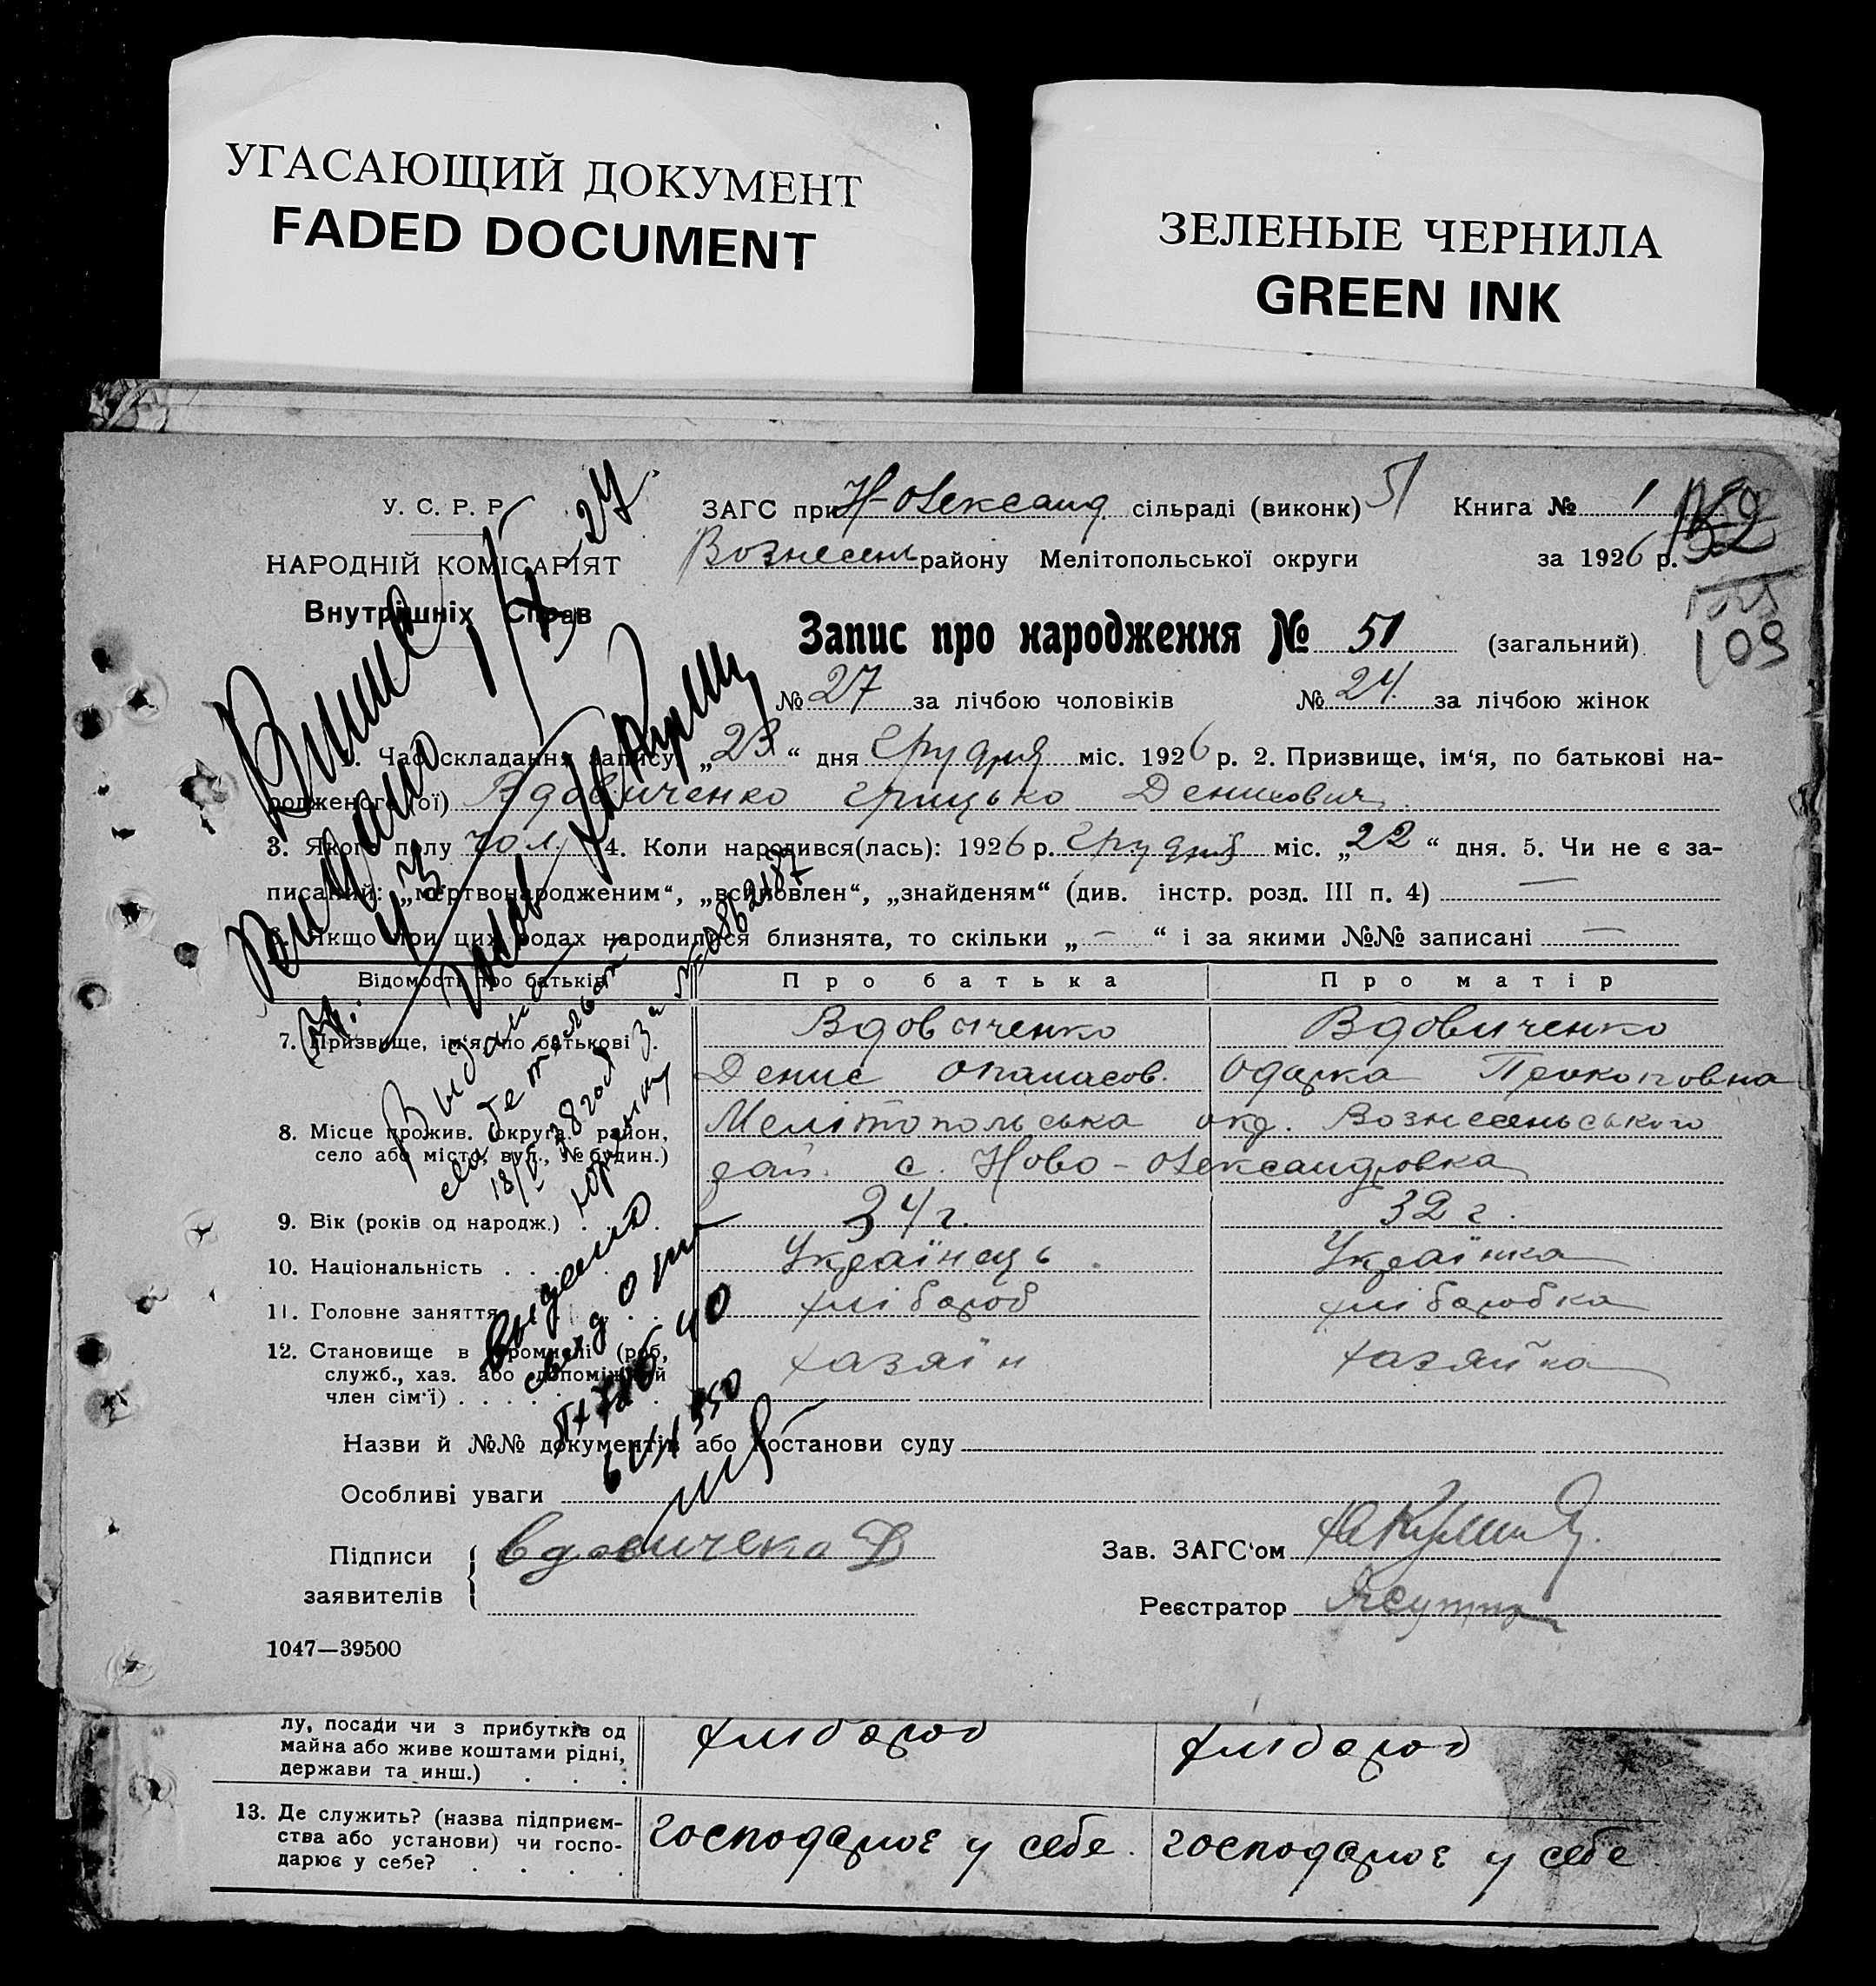 УГАСАЮЩИЙ ДОКУМЕНТ
FADED DOCUMENT
ЗЕЛЕНЫЕ ЧЕРНИЛА
GREEN INK
У. С. Р. Р.
НАРОДНІЙ КОМІСАРІЯТ
Внутрішніх Справ
ЗАГС при Н-Олександ. сільраді (виконк) 51 Книга № 1
Вознесен району Мелітопольської округи за 1926 р.
109
Запис про народження № 51 (загальний)
№ 27 за лічбою чоловіків № 24 за лічбою жінок
1. Час складання запису „23“ дня грудня міс. 1926 р. 2. Призвище, ім‘я, по батькові на-
родженого (ої) Вдовиченко Грицько Денисович
3. Якого полу чол. 4. Коли народився(лась): 1926 р. грудня міс. „22“ дня. 5. Чи не є за-
писаний: „мертвонародженим“, „всиновлен“, „знайденям“ (див. інстр. розд. III п. 4) —
6. Якщо при цих родах народилися близнята, то скільки „—“ і за якими №№ записані —
Відомості про батьків Про батька Про матір
7. Призвище, ім‘я, по батькові . Вдовиченко Вдовиченко
Денис Опанасов. Одарка Прокоповна
8. Місце прожив. (округа, район, Мелітопольська окр. Вознесеньського
село або місто, вул., № будин.) рай. с. Ново-Олександровка
9. Вік (років од народж.) . . . 34 г. 32 г.
10. Національність . . . . Українець. Українка
11. Головне заняття . . . . хлібороб хліборобка
12. Становище в промислі (роб, хазяїн хазяйка
служб., хаз. або допоміжний
член сім‘ї) . . . .
Назви й №№ документів або постанови суду
Особливі уваги
Підписи
заявителів
Вдовичено Д
Зав. ЗАГС‘ом
Реєстратор
1047—39500
Видано
Выдано
18/V 38 года за №
выдано
свид о
лу, посади чи з прибутків од
майна або живе коштами рідні,
держави та инш.) . . . хлібороб хлібороб
13. Де служить? (назва підприєм-
ства або установи) чи госпо-
дарює у себе? . . . . господарює у себе. господарює у себе